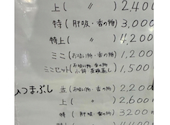 上(　〃　) 2,400
特(肝吸・香の物) 3,000
特上(　〃　) 4,000
ミニ(お吸い物・香の物) 1,200
ミニセット( 1,500
ひつまぶし 並(お吸い物・香の物) 2,200
上(　〃　) 2,600
特(肝吸・香の物) 3200
(　〃　) 4200